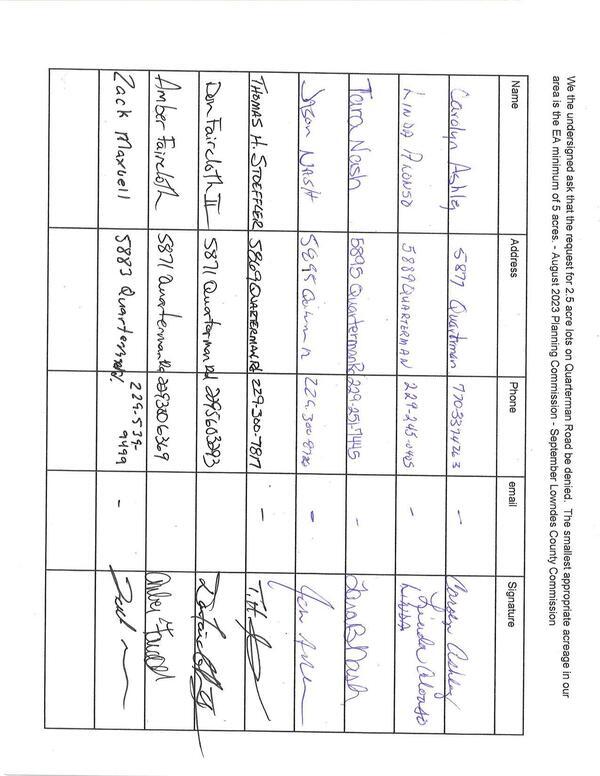 We the undersigned ask that the request for 2.5 acre lots on Quarterman Road be denied. The smallest appropriate acreage in our
area is the EA minimum of 5 acres. - August 2023 Planning Commission - September Lowndes County Commission
Name Address Phone email Signature
Carolyn Ashley 5877 Quarterman 7703374263 - Carolyn Ashley
LINDA ALONSO 5889 QUARTERMAN 229-245-0405 - Linda Alonso
LINDA
Tara Nash 5895 Quarterman Rd 229-251-7445 - Tara B Nash
JASON NASH 5895 229-300-8720 -
THOMAS H. STOEFFLER 5869 QUARTERMAN Rd 229-300-7817 - T.H.
Don Faircloth II 5871 Quarterman Rd 2295603293
Amber Faircloth 5871 Quarterman Rd 2293006369
Zack Maxwell 5883 Quarterman Rd. 229-539-
9499 -